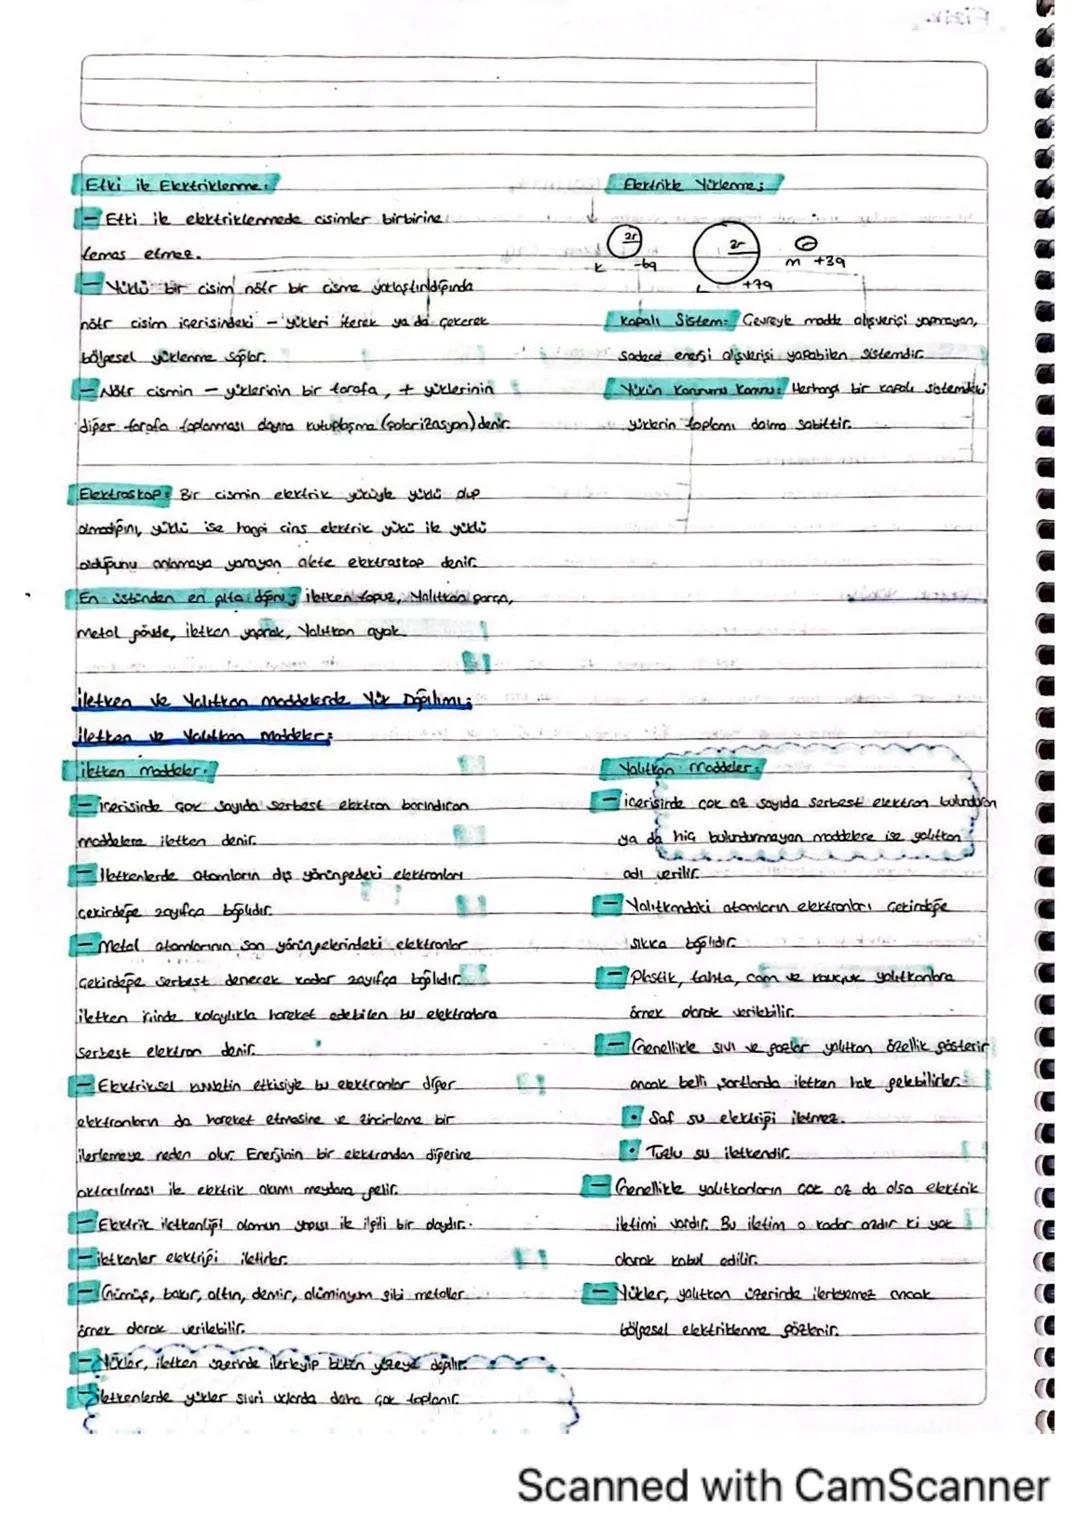 Fizik.
Etki ile Elektriklenme:
- Etki ile elektriklenmede cisimler birbirine
temas etmez.
- Yüklü bir cisim nötr bir cisme yaklaştırıldığında
nötr cisim içerisindeki - yükleri iterek ya da çekerek
bölgesel yüklenme sağlar.
- Nötr cismin - yüklerinin bir tarafa, + yüklerinin
diğer tarafa toplanması olayına kutuplaşma (polarizasyon) denir.
Elektrikle Yüklenme:
2r
K -6q
2r
L +7q
M +3q
Kapalı Sistem: Çevreyle madde alışverişi yapmayan,
sadece enerji alışverişi yapabilen sistemdir.
Yükün Korunumu Kanunu: Herhangi bir kapalı sistemdeki
yüklerin toplamı daima sabittir.
Elektroskop: Bir cismin elektrik yüküyle yüklü olup
olmadığını, yüklü ise hangi cins elektrik yükü ile yüklü
olduğunu anlamaya yarayan alete elektroskop denir.
En üstünden en alta doğru; iletken topuz, Yalıtkan parça,
Metal gövde, iletken yaprak, Yalıtkan ayak.
İletken ve Yalıtkan maddelerde Yük Dağılımı:
İletken ve Yalıtkan Maddeler:
İletken maddeler:
- içerisinde çok sayıda serbest elektron barındıran
maddelere iletken denir.
- İletkenlerde atomların dış yörüngedeki elektronları
çekirdeğe zayıfça bağlıdır.
- Metal atomlarının son yörüngelerindeki elektronlar
çekirdeğe serbest denecek kadar zayıfça bağlıdır.
iletken içinde kolaylıkla hareket edebilen bu elektronlara
serbest elektron denir.
- Elektriksel kuvvetin etkisiyle bu elektronlar diğer
elektronların da hareket etmesine ve zincirleme bir
ilerlemeye neden olur. Enerjinin bir elektrondan diğerine
aktarılması ile elektrik akımı meydana gelir.
- Elektrik iletkenliği atomun yapısı ile ilgili bir olaydır.
- iletkenler elektriği iletirler.
- Gümüş, bakır, altın, demir, alüminyum gibi metaller
örnek olarak verilebilir.
- Yükler, iletken üzerinde ilerleyip bütün yüzeye dağılır.
- iletkenlerde yükler sivri uçlarda daha çok toplanır.
Yalıtkan Maddeler:
- içerisinde çok az sayıda serbest elektron bulunduran
ya da hiç bulundurmayan maddelere ise yalıtkan
adı verilir.
- Yalıtkandaki atomların elektronları çekirdeğe
sıkıca bağlıdır.
- Plastik, tahta, cam ve kauçuk yalıtkanlara
örnek olarak verilebilir.
- Genellikle sıvı ve gazlar yalıtkan özellik gösterir
ancak belli şartlarda iletken hale gelebilirler.
• Saf su elektriği iletmez.
• Tuzlu su iletkendir.
- Genellikle yalıtkanların çok az da olsa elektrik
iletimi vardır. Bu iletim o kadar azdır ki yok
olarak kabul edilir.
- Yükler, yalıtkan üzerinde ilerleyemez ancak
bölgesel elektriklenme gözlenir.
Scanned with CamScanner